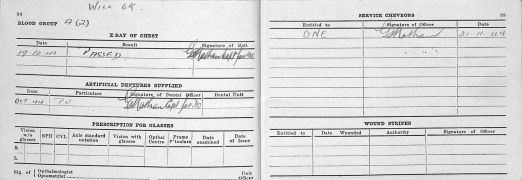 WILL OK.
24
BLOOD GROUP A (2)
X-RAY OF CHEST
Date Result Signature of M.O.
19-10-42 PASSED
ARTIFICIAL DENTURES SUPPLIED
Date Particulars Signature of Dental Officer Dental Unit
PRESCRIPTION FOR GLASSES
Vision w/o glasses SPH CYL Axis standard notation Vision with glasses Opthal Centre Frame P'ticulars Date examined Date of Issue
R
L
Sig. of Opthalmologist Optometrist Unit Officer
SERVICE CHEVRONS 25
Entitled to Signature of Officer Date
ONE 21-11-44
WOUND STRIPES
Entitled to Date Wounded Authority Signature of Officer